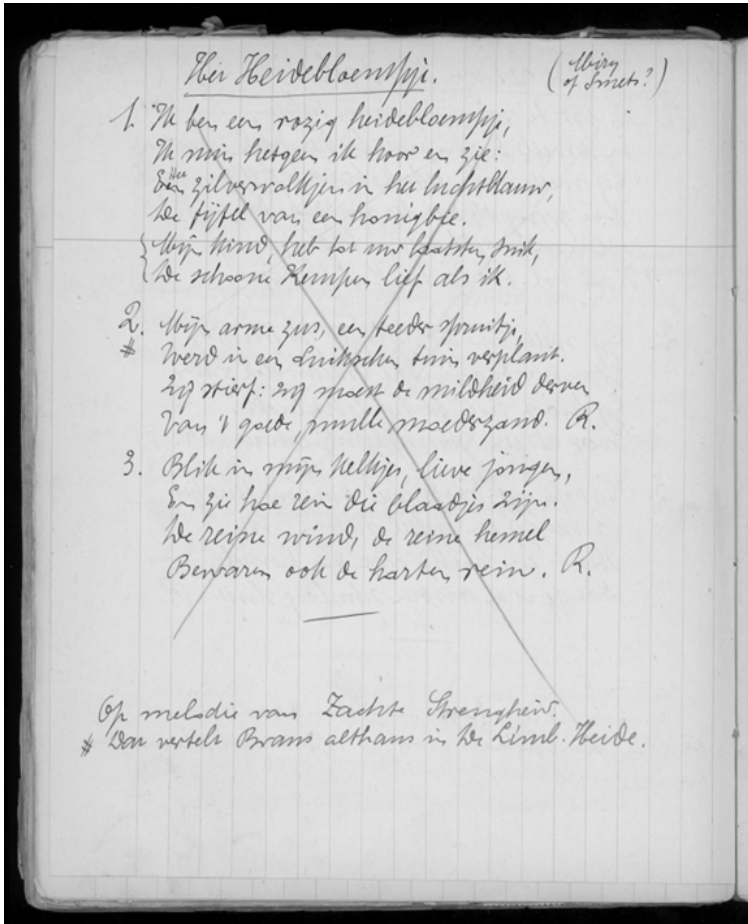 Het Heidebloempje.
(Miry of Smets?)
1. Ik ben een rozig heidebloempje,
Ik min hetgeen ik hoor en zie:
Het zilverwolkjen in het luchtblauw,
De fijfel van een honigbie.
Mijn kind, heb tot uw laatsten snik,
De schoone Kempen lief als ik.
2. Mijn arme zus, een teeder spruitje,
# Werd in een Luikschen tuin verplant.
Zij stierf: zij moest de mildheid derven
Van 't goede, mulle moederzand. R.
3. Blik in mijn kelkjes, lieve jongen,
En zie hoe rein die blaadjes zijn.
De reine wind, de reine hemel
Bewaren ook de harten rein. R.
Op melodie van Zachte Strengheid.
# Dat vertelt Brans althans in De Limb. Heide.